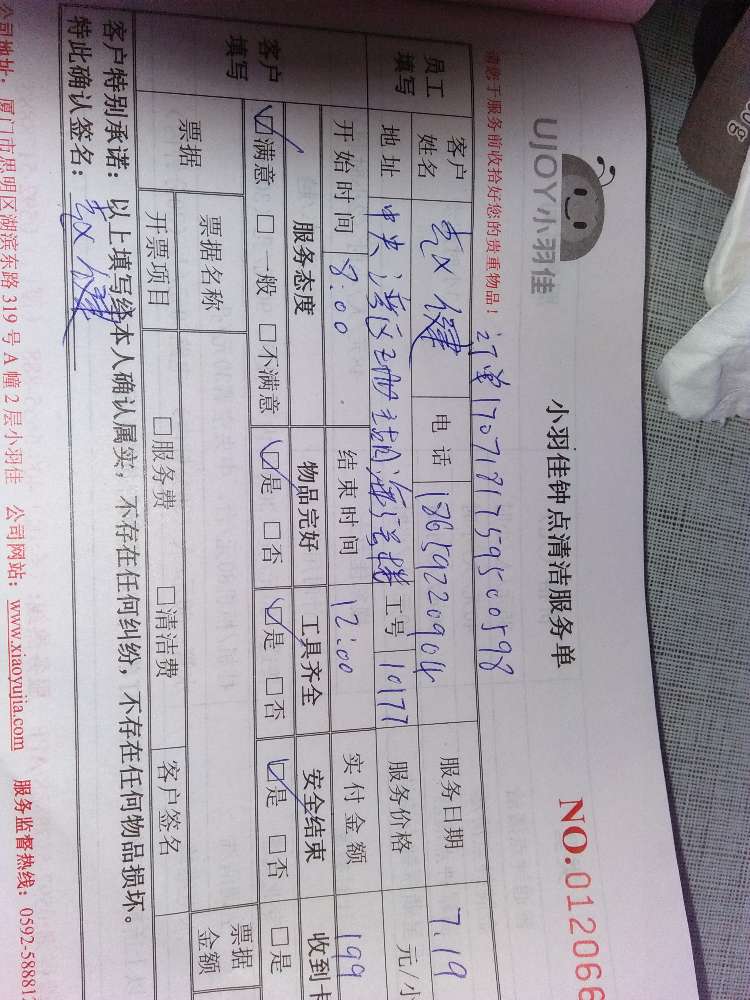 UJOY小羽佳
小羽佳钟点清洁服务单
NO.012066
请您于服务前收拾好您的贵重物品！
订单1707181759500598
员工填写
客户姓名 赵健 电话 18659220904 服务日期 7.19
地址 中央湾区 工号 10177 服务价格 元/小
开始时间 8:00 结束时间 12:00 实付金额 199
客户填写
服务态度 物品完好 工具齐全 安全结束 收到卡
☑满意 □一般 □不满意 ☑是 □否 ☑是 □否 ☑是 □否 □是
票据 票据名称 票据金额
开票项目 □服务费 □清洁费 客户签名
客户特别承诺：以上填写经本人确认属实，不存在任何纠纷，不存在任何物品损坏。
特此确认签名：赵健
公司地址：厦门市思明区湖滨东路319号A幢2层小羽佳 公司网站：www.xiaoyujia.com 服务监督热线：0592-58881